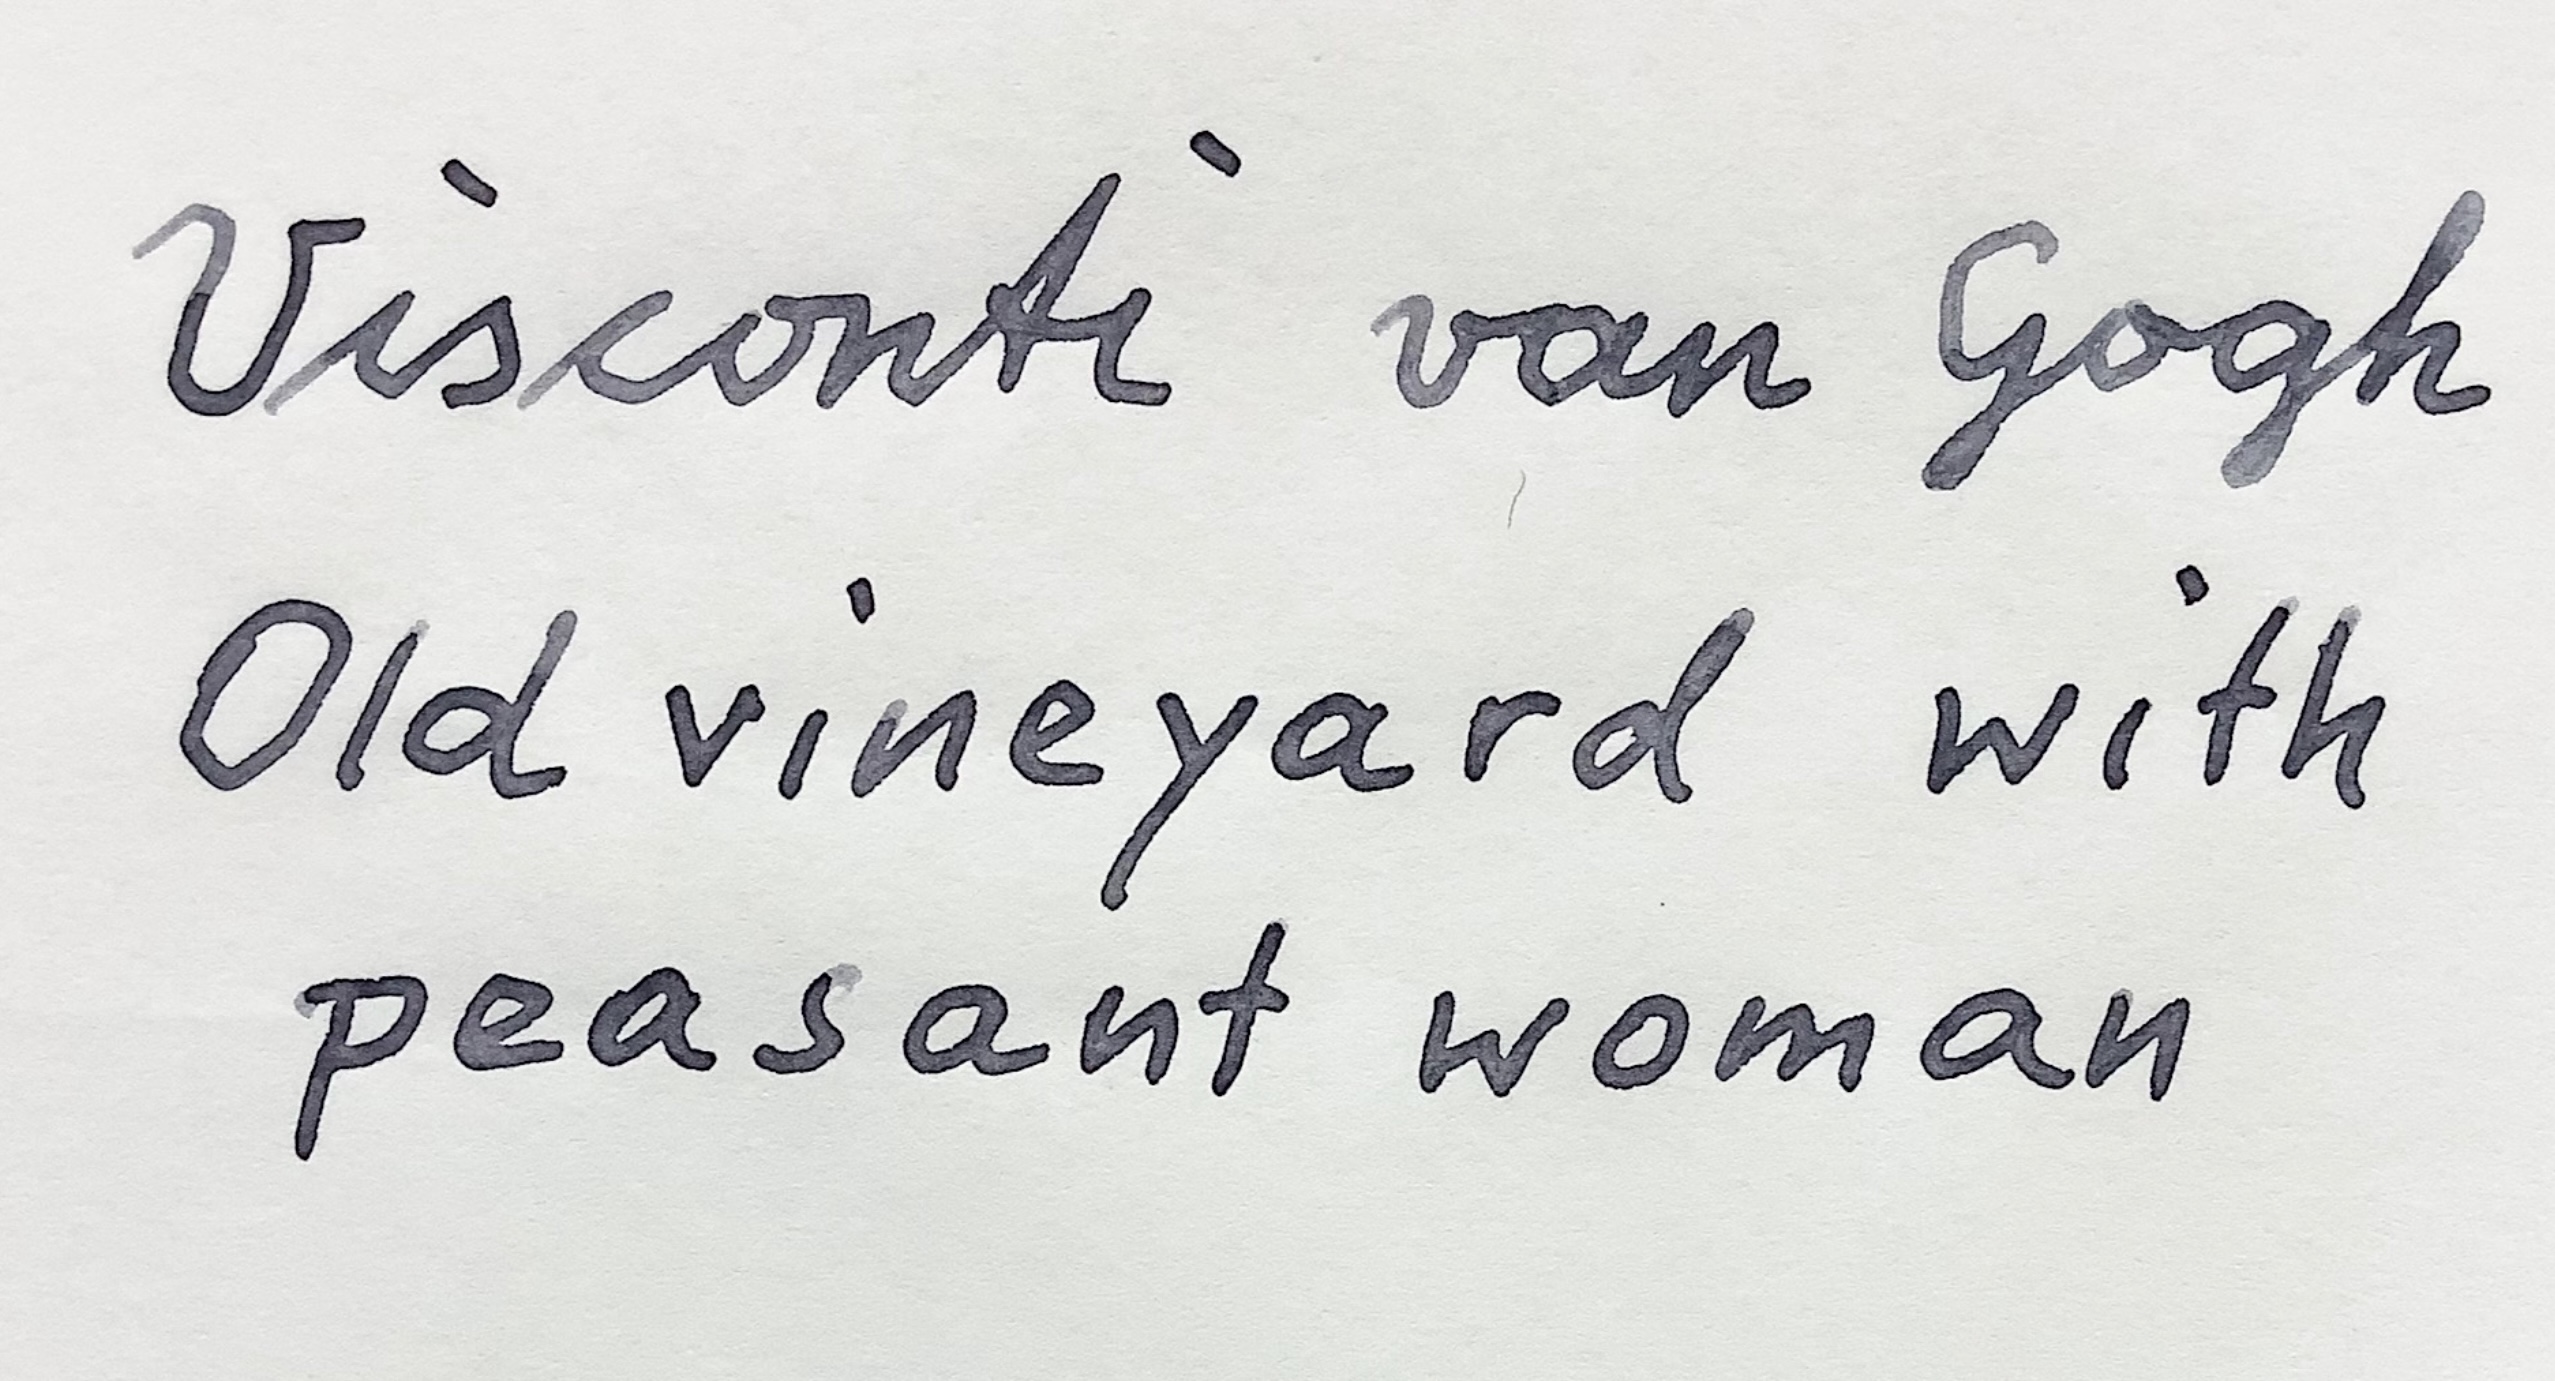 Visconti van Gogh
Old vineyard with
peasant woman